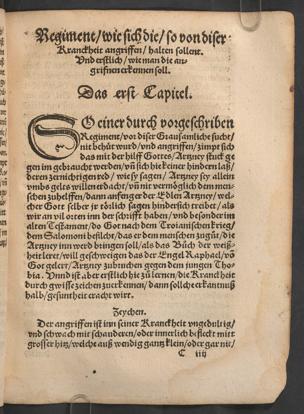 Regiment/ wie sich die/ so von diser
Kranckheit angriffen/ halten sollent.
Und erstlich/ wie man die an-
griffnen erkennen soll.
Das erst Capitel.
SO einer durch vorgeschriben
Regiment/ vor diser Grausamliche sucht/
nit behüt wurd/ und angriffen/ zimpt sich
das mit der hilff Gottes/ Artzney stuck ge
gen im gebraucht werden/ uñ sich hie keiner hindern laß/
deren zernichtigen red/ wie sy sagen/ Artzney sey allein
umbs gelts willen erdacht/ uñ nit vermöglich dem men-
schen zuhelffen/ dann anfenger der Edlen Artzney/ wel-
cher Gott selber je tödlich sagen hindersich treibet/ als
wir an vil orten inn der schrifft haben/ und besonder im
alten Testament/ do Got nach dem Troianischen krieg/
dem Salomoni befilcht/ das er dem menschen zugüt/ die
Artzney inn werd bringen soll/ als das Büch der weiß-
heit leret/ will geschweigen das der Engel Raphael/ võ
Got gelert/ Artzney zubruchen gegen dem jungen Tho-
bia. Unnd ist aber erstlich hie zü lernen/ die Kranckheit
durch gwisse zeichen zuerkennen/ dann solche erkantnuß
halb/ gesuntheit eracht wirt.
Zeychen.
Der angriffen ist inn seiner Kranckheit ungedultig/
und schwach mit schauderen/ oder innerlich befleckt mit
grosser hitz/ welche auß wendig gantz klein/ oder gar nit/
C iiij